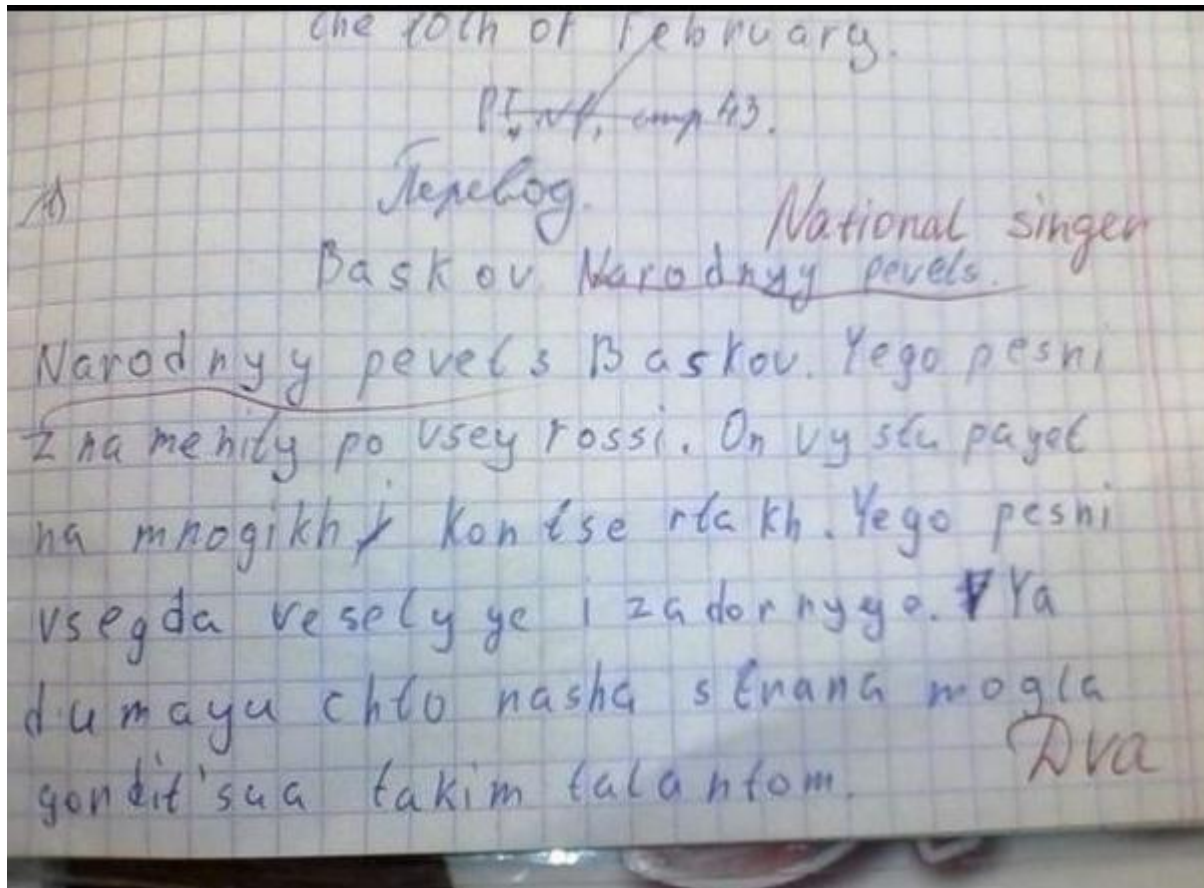 the 10th of February.
стр 43.
1)
Перевод.
National singer
Baskov Narodnyy pevets.
Narodnyy pevets Baskov. Yego pesni
znamenity po vsey rossi. On vystupayet
na mnogikh kontsertakh. Yego pesni
vsegda veselyye i zadornyye. Ya
dumayu chto nasha strana mogla
gordit'sua takim talantom.
Dva